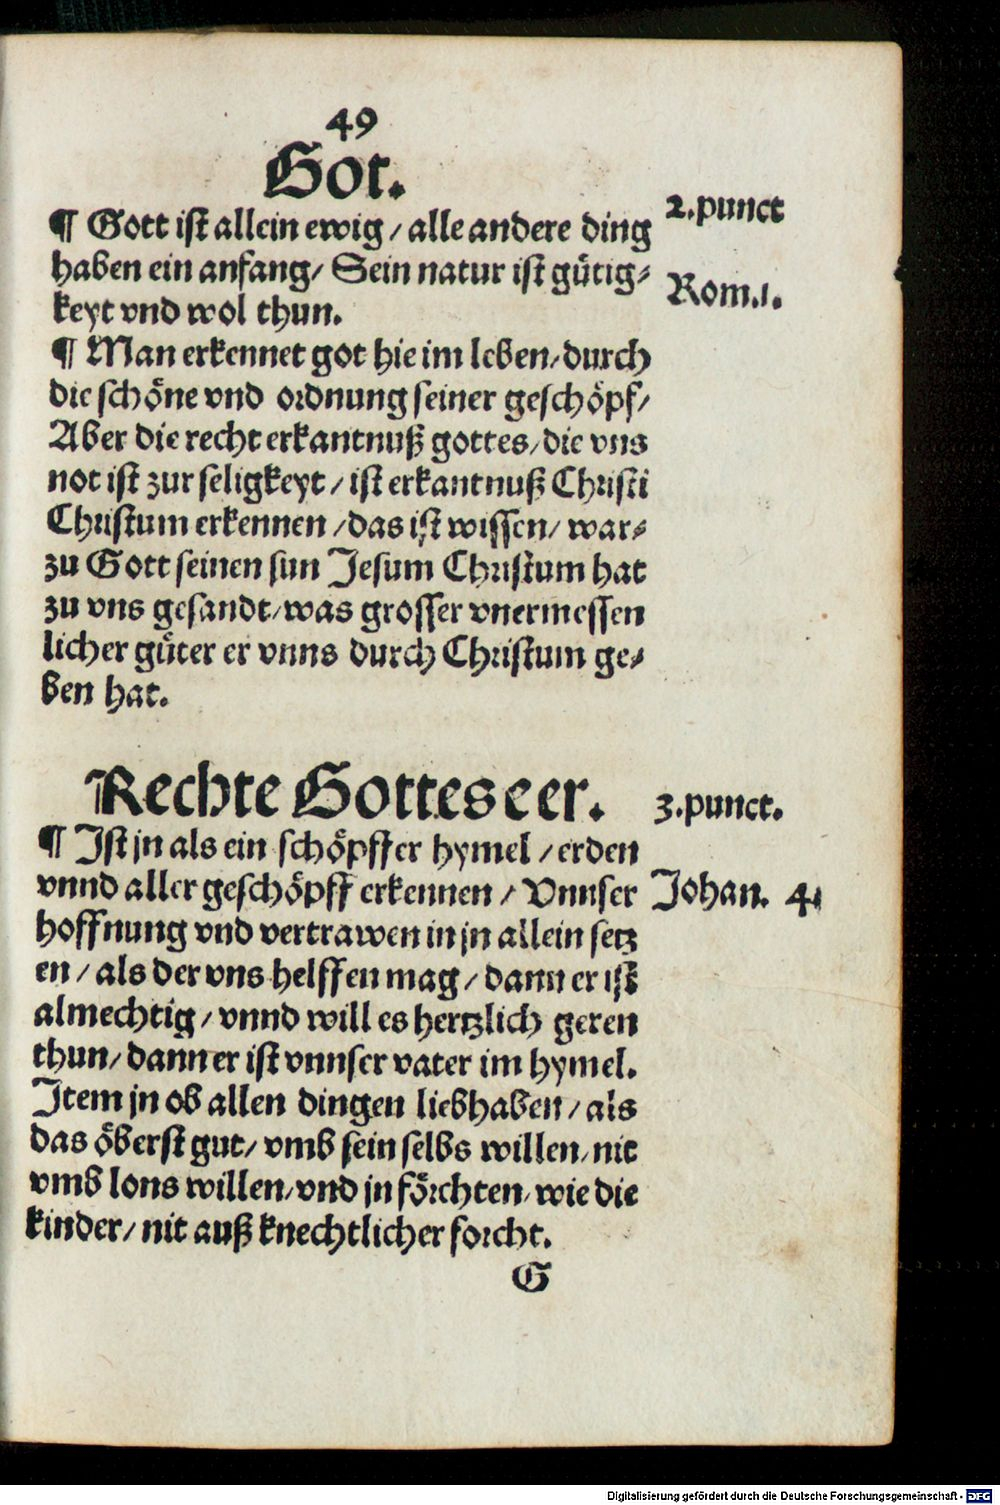 49
Got.
¶ Gott ist allein ewig / alle andere ding
2.punct
haben ein anfang / Sein natur ist gütig⸗
Rom.1.
keyt vnd wol thun.
¶ Man erkennet got hie im leben / durch
die schöne vnd ordnung seiner geschöpf /
Aber die recht erkantnuß gottes / die vns
not ist zur seligkeyt / ist erkantnuß Christi
Christum erkennen / das ist wissen / war⸗
zu Gott seinen sun Jesum Christum hat
zu vns gesandt / was grosser vnermessen
licher güter er vnns durch Christum ge⸗
ben hat.
Rechte Gottes eer.
3.punct.
¶ Ist jn als ein schöpffer hymel / erden
vnnd aller geschöpff erkennen / Vnnser
Johan. 4.
hoffnung vnd vertrawen in jn allein setz
en / als der vns helffen mag / dann er ist
almechtig / vnnd will es hertzlich geren
thun / dann er ist vnnser vater im hymel.
Item jn ob allen dingen liebhaben / als
das öberst gut / vmb sein selbs willen / nit
vmb lons willen / vnd jn förchten / wie die
kinder / nit auß knechtlicher forcht.
G
Digitalisierung gefördert durch die Deutsche Forschungsgemeinschaft - DFG